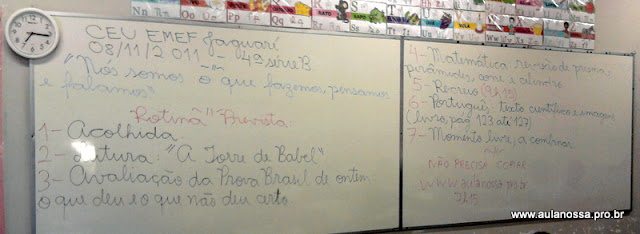 Nn Oo Pp Qq Rr Ss Tt
Uu Ww
CEU EMEF Jaguaré
08/11/2.011 - 4ª série B
"Nós somos o que fazemos, pensamos
e falamos."
Rotina Prevista
1 - Acolhida
2 - Leitura: "A Torre de Babel"
3 - Avaliação da Prova Brasil de ontem:
o que deu e o que não deu certo.
4 - Matemática, revisão de prismas,
pirâmides, cone e cilindro
5 - Recreio
6 - Português, texto científico e imagens
(livro, pág 123 até 127)
7 - Momento livre, a combinar
NÃO PRECISA COPIAR
www.aulanossa.pro.br
7h15
www.aulanossa.pro.br